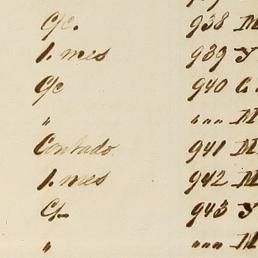 c/c. 938 M
1. mes 939 Y
c/c 940 C.
" """ M
Contado 941 M
1. mes 942 M
c/- 943 Y
" """ M